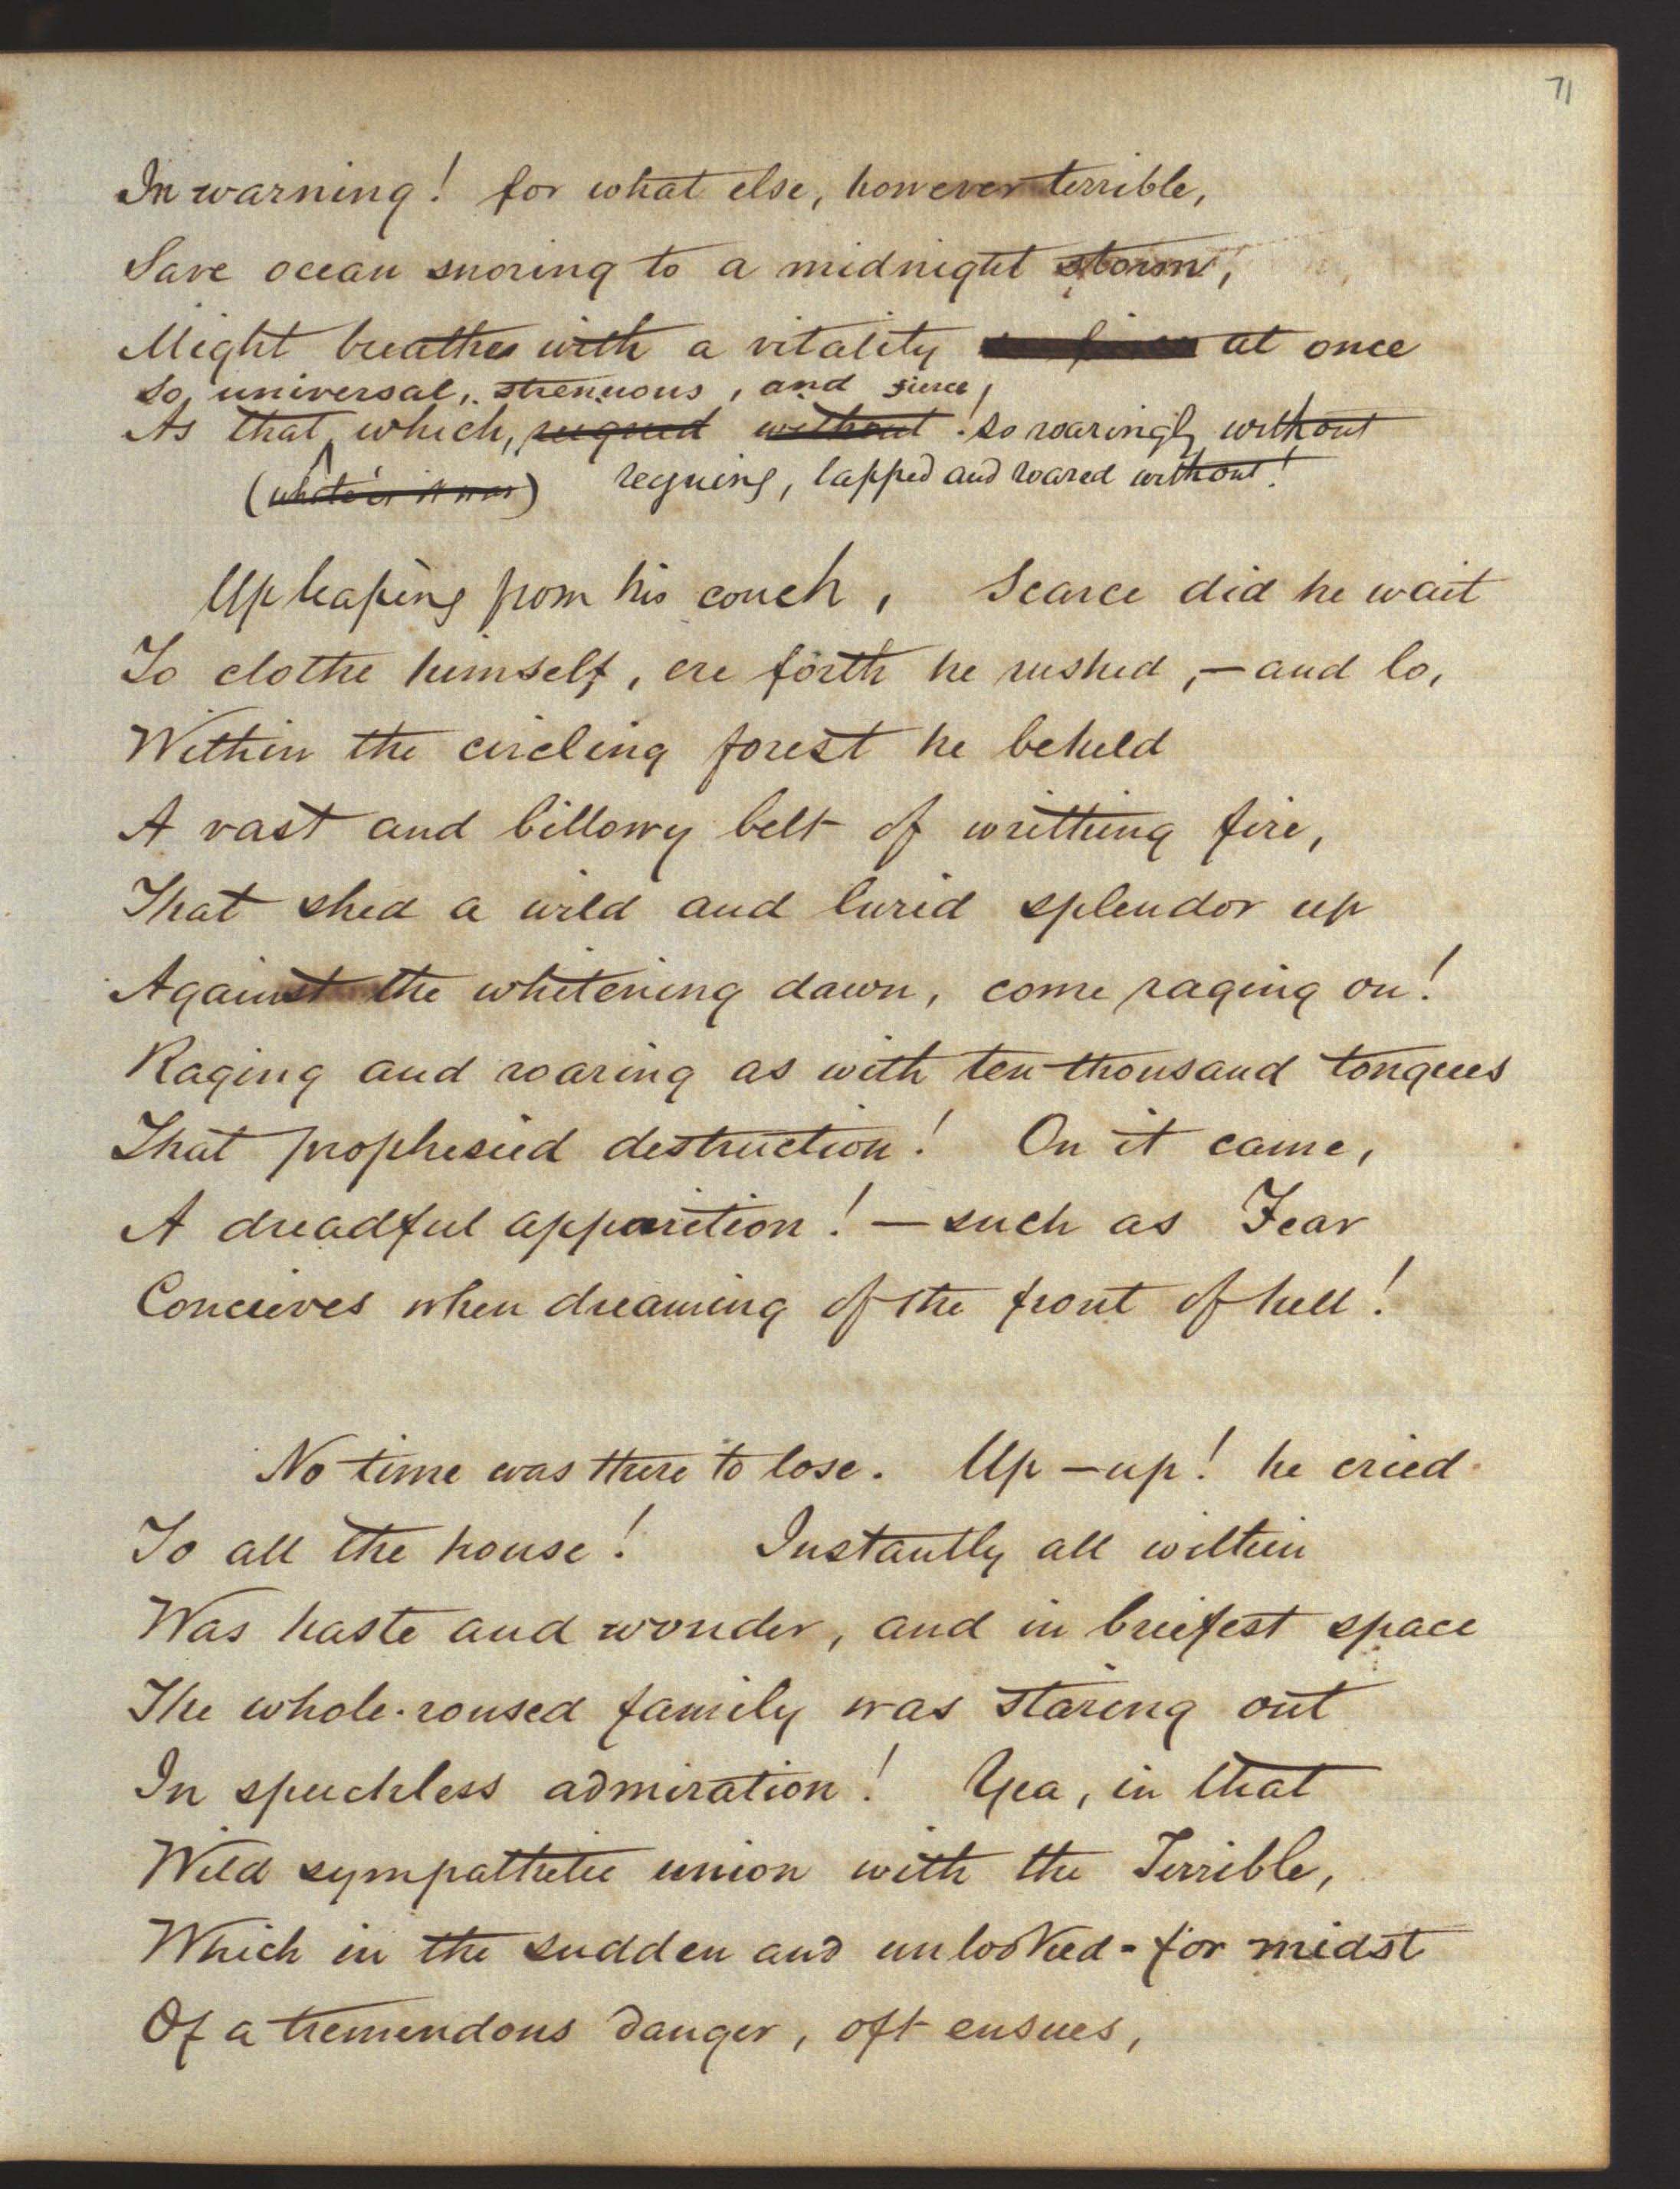 71
In warning! for what else, however terrible,
Save ocean snoring to a midnight storm,
Might breathe with a vitality at once
So universal, strenuous, and fierce,
As that which, reigned without! so roaringly without
(whate'er it was) reguing, lapped and roared without!
Upleaping from his couch, Scarce did he wait
To clothe himself, ere forth he rushed,—and lo,
Within the circling forest he beheld
A vast and billowy belt of writhing fire,
That shed a wild and lurid splendor up
Against the whitening dawn, come raging on!
Raging and roaring as with ten thousand tongues
That prophesied destruction! On it came,
A dreadful apparition!—such as Fear
Conceives when dreaming of the front of hell!
No time was there to lose. Up—up! he cried
To all the house! Instantly all within
Was haste and wonder, and in briefest space
The whole-roused family was staring out
In speechless admiration! Yea, in that
Wild sympathetic union with the Terrible,
Which in the sudden and unlooked-for midst
Of a tremendous danger, oft ensues,